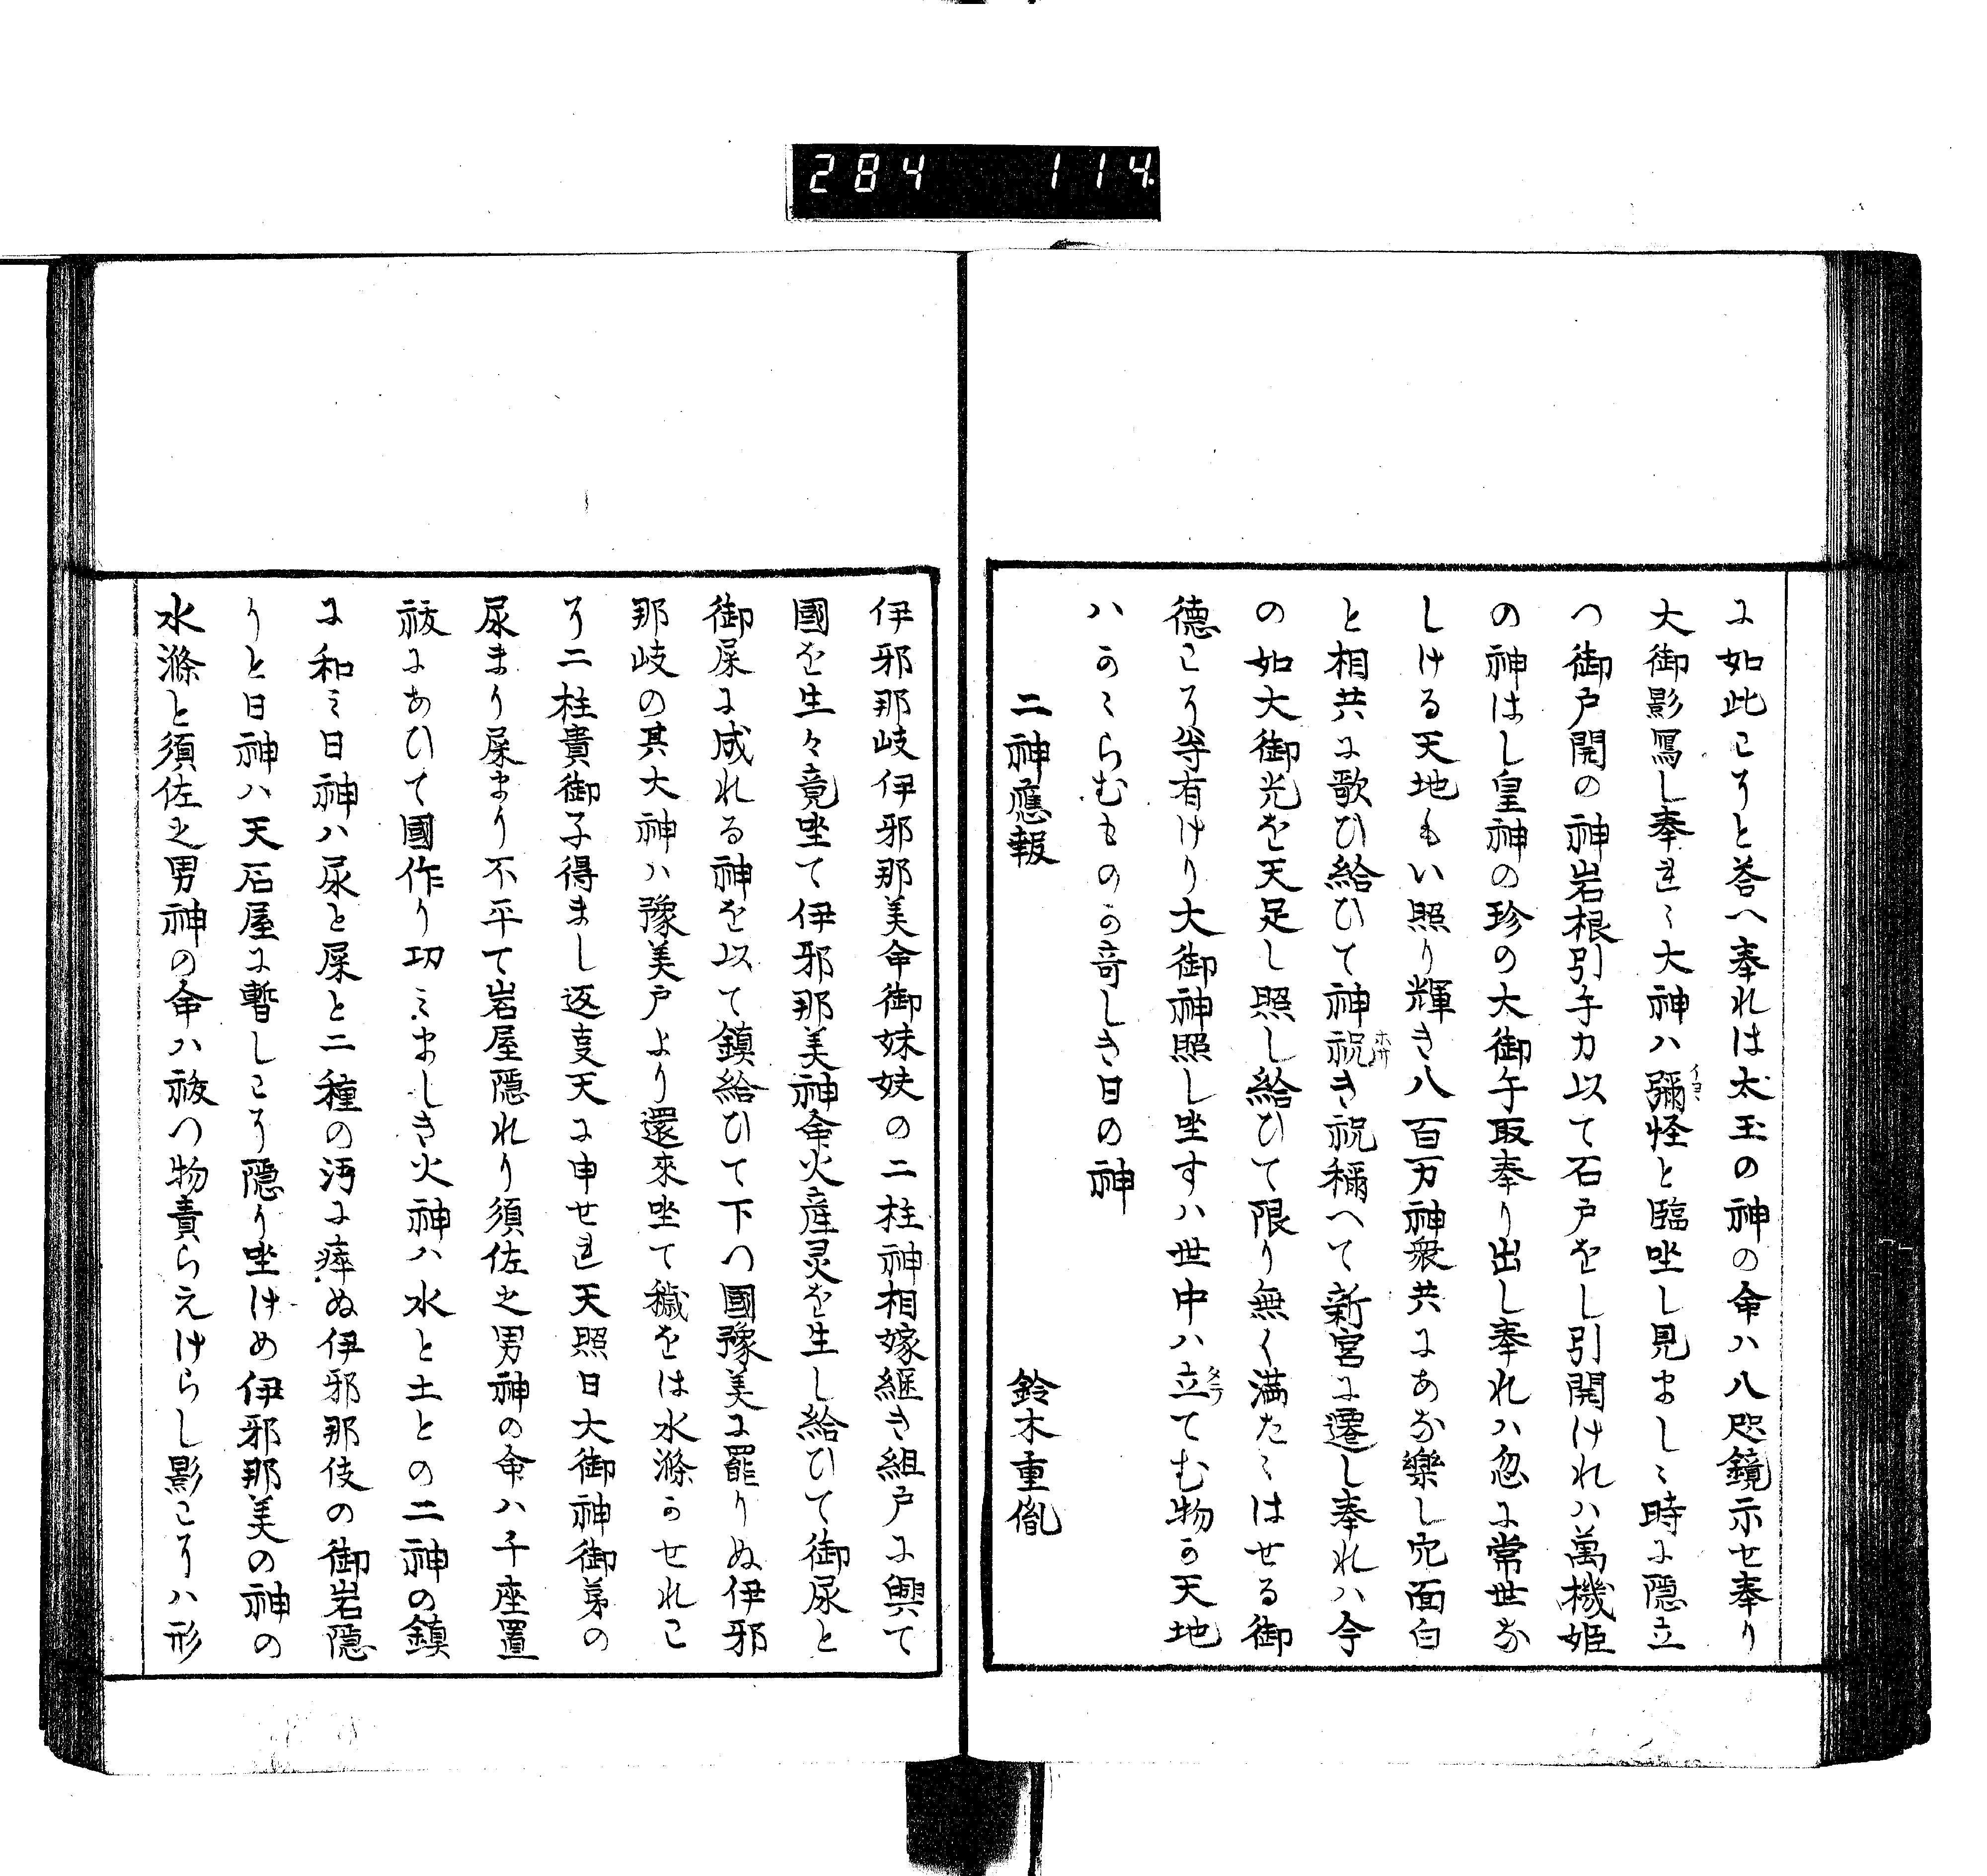 284 114
に如此こそと答へ奉れは太玉の神の命ハ八咫鏡示せ奉り
大御影寫し奉れゝ大神ハ彌怪と臨坐し見ましゝ時に隠立
つ御戸開の神岩根引手力以て石戸をし引開けれハ萬機姫
の神はし皇神の珍の大御手取奉り出し奉れハ忽に常世な
しける天地もい照り輝き八百万神衆共にあな樂し穴面白
と相共に歌ひ給ひて神祝き祝稱へて新宮に遷し奉れハ今
の如大御光を天足し照し給ひて限り無く満たゝはせる御
德こそ有けり大御神照し坐すハ世中ハ立てむ物か天地
ハかゝらむものか奇しき日の神
二神應報 鈴木重胤
伊邪那岐伊邪那美命御妹妋の二柱神相嫁継き組戸に興て
國を生々竟坐て伊邪那美神命火産灵を生し給ひて御尿と
御屎に成れる神を以て鎮給ひて下つ國豫美に罷りぬ伊邪
那岐の其大神ハ豫美戸より還來坐て穢をは水滌かせれこ
そ二柱貴御子得まし返㕝天に申せれ天照日大御神御弟の
尿まり屎まり不平て岩屋隠れり須佐之男神の命ハ千座置
祓にあひて國作り功ミましき火神ハ水と土との二神の鎮
に和ミ日神ハ尿と屎と二種の汚に瘁ぬ伊邪那伎の御岩隠
りと日神ハ天石屋に暫しこそ隠り坐けめ伊邪那美の神の
水滌と須佐之男神の命ハ祓つ物責らえけらし影こそハ形